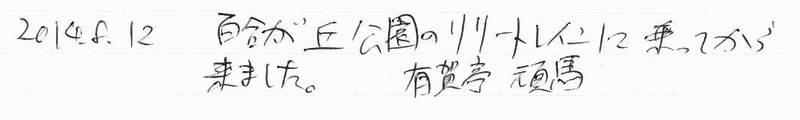 2014.8.12 百合が丘公園のリリートレインに乗ってから
来ました。 有賀亭 頑馬